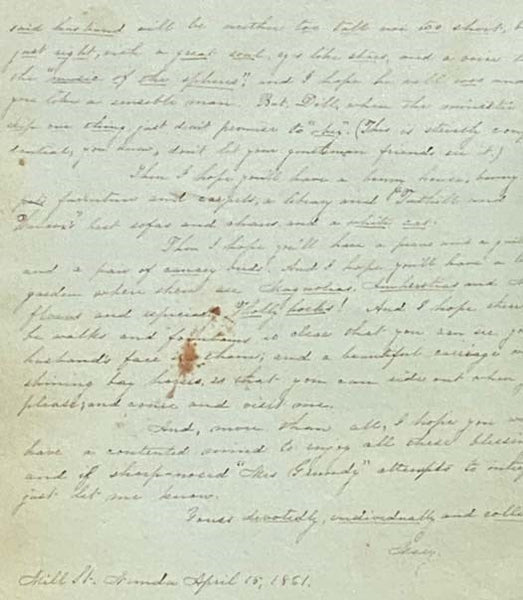 said husband will be neither too tall nor too short, b
just right, with a great soul, eyes like stars, and a voice l
the "music of the spheres", and I hope he will woo and
you like a sensible man. But, Dill, when the minister
one thing just don't promise to "joy". (This is strictly con
dential, you know, don't let your gentleman friends see it.)
Then I hope you'll have a house, bran
furniture and carpets, a library and "Tuthill and
best sofas and chairs, and a white cat.
Then I hope you'll have a piano and a gui
and a pair of canary birds! And I hope you'll have a l
garden where there are Magnolias, Amherstias and
flowers and especially "Holly hocks"! And I hope there
be walks and fountains so clear that you can see yo
husband's face in them; and a beautiful carriage a
shining bay horses, so that you can ride out when
please, and come and visit me.
And, more than all, I hope you w
have a contented mind to enjoy all these bless
and if sharpnosed "Mrs Grundy" attempts to
just let me know.
Yours devotedly, individually and colle
Mill St. Nunda April 15, 1861.